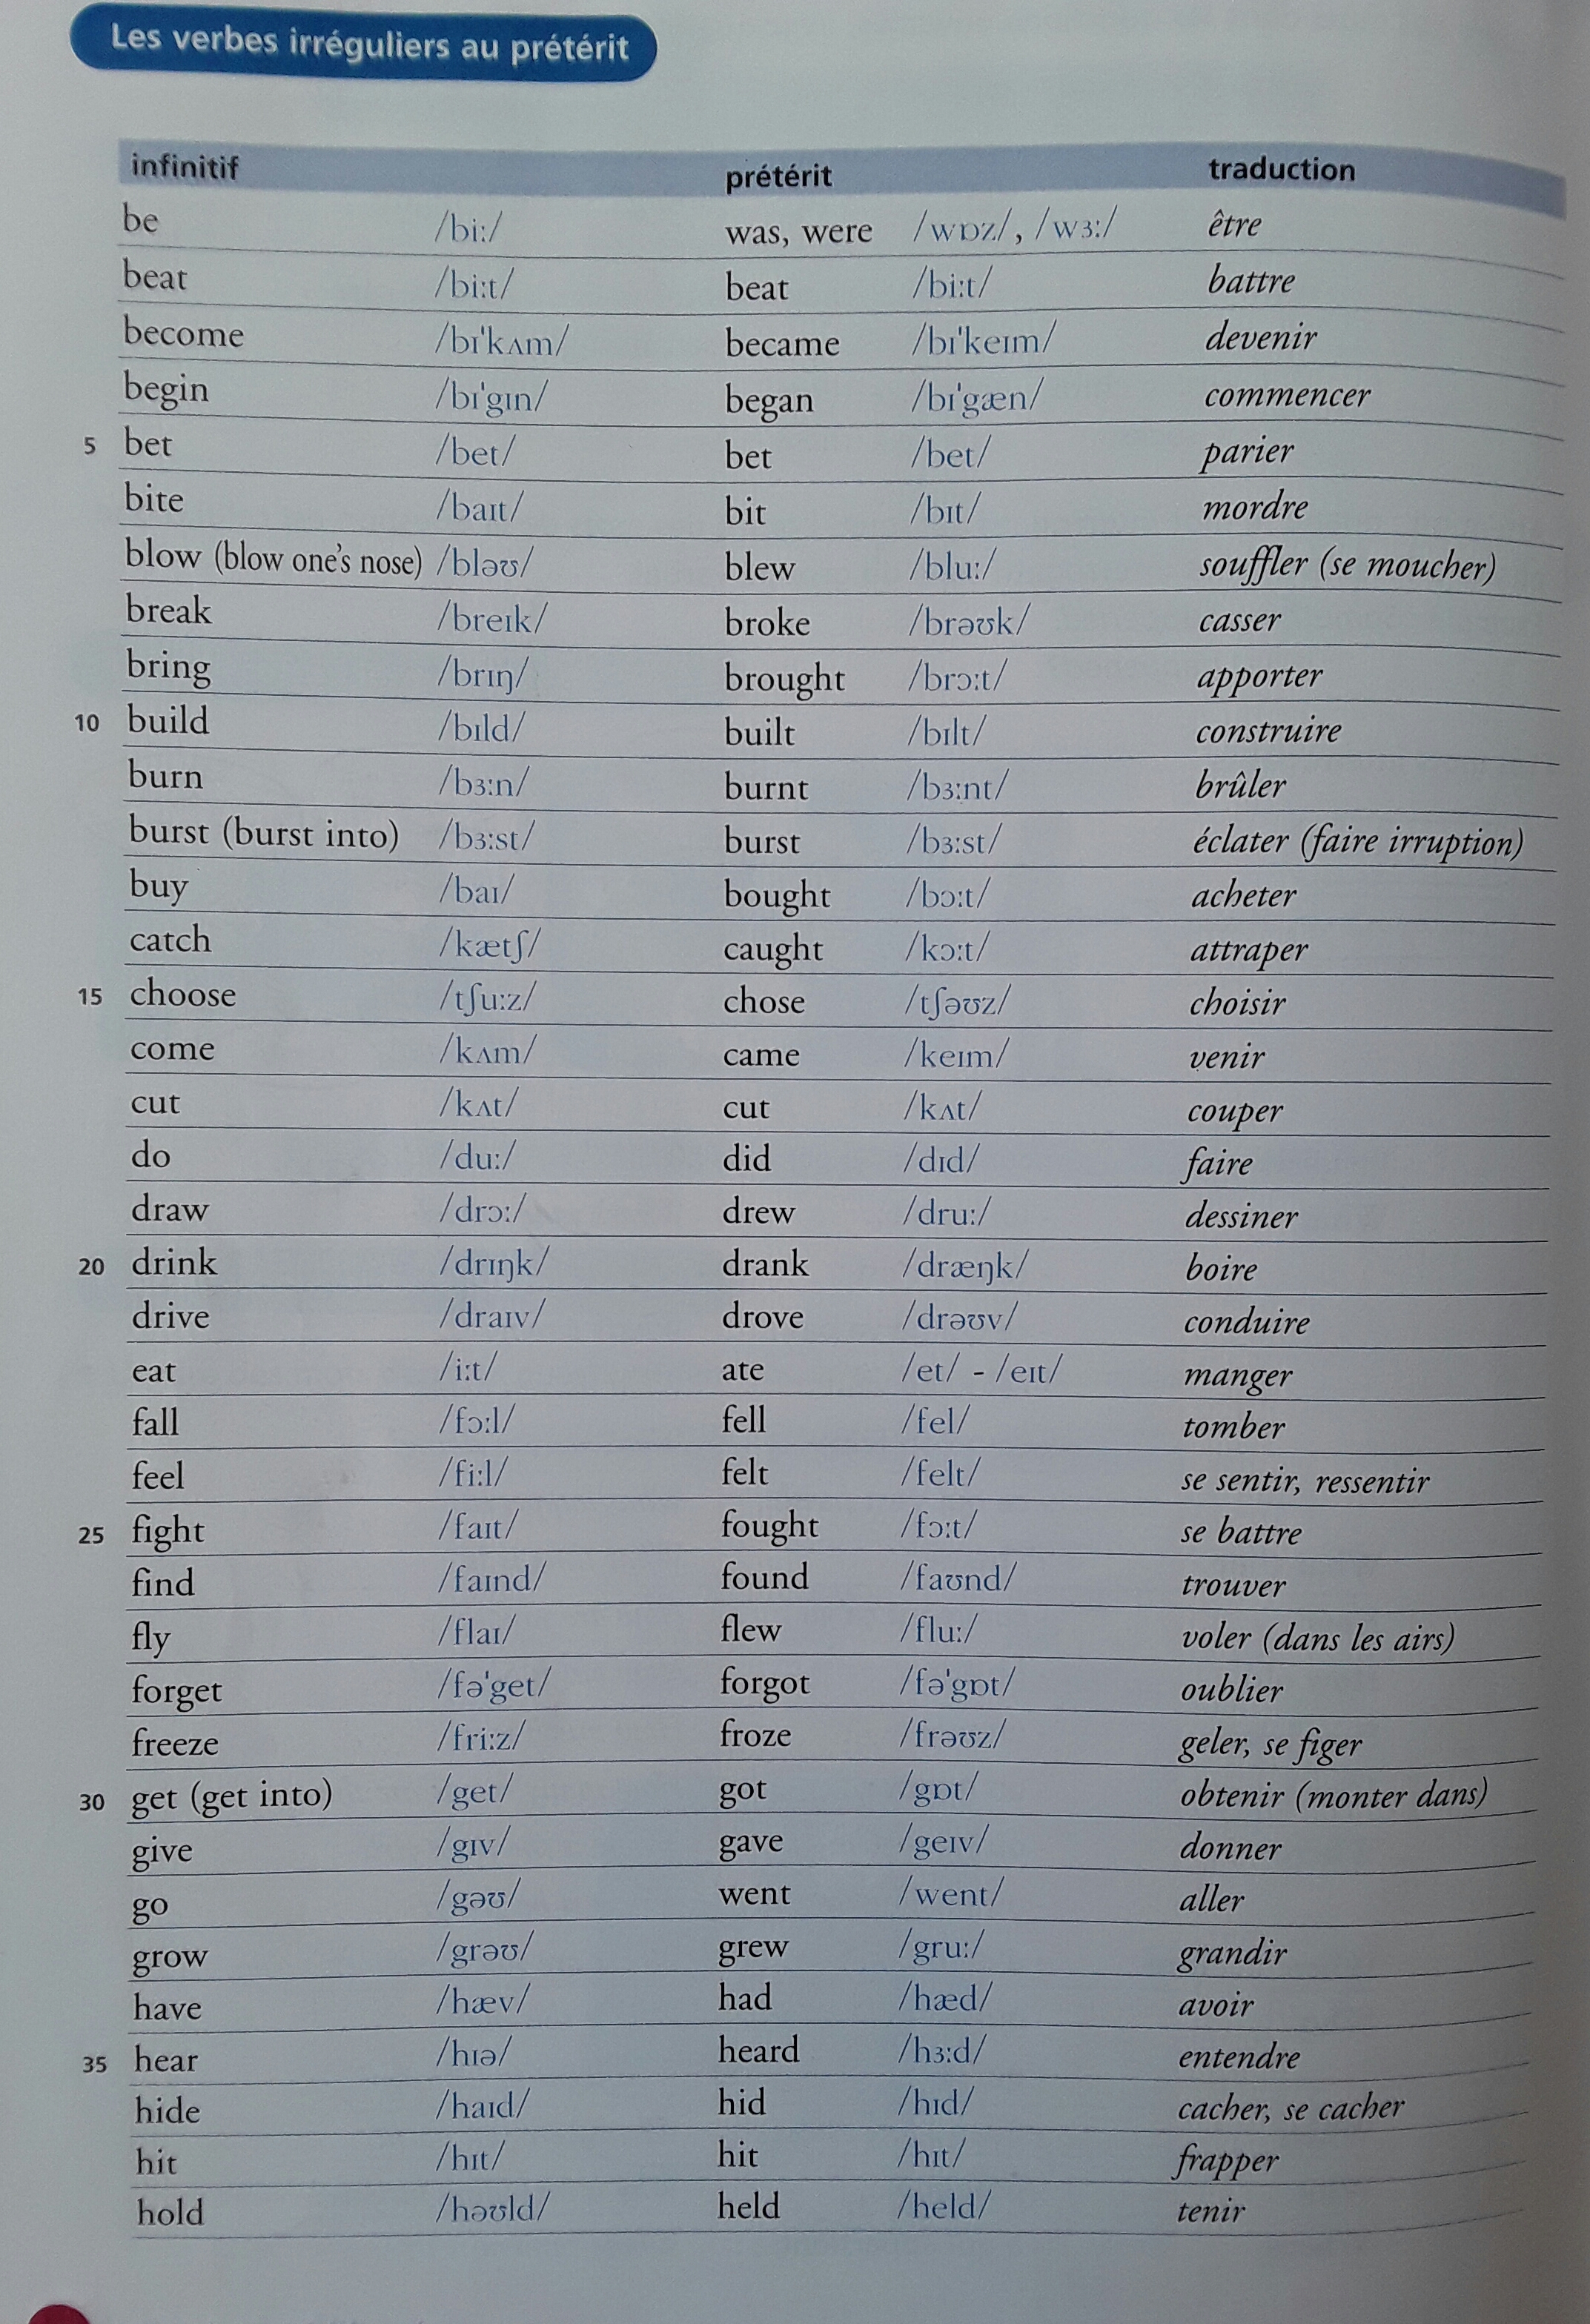 Les verbes irréguliers au prétérit
infinitif prétérit traduction
be /biː/ was, were /wɒz/, /wɜː/ être
beat /biːt/ beat /biːt/ battre
become /bɪˈkʌm/ became /bɪˈkeɪm/ devenir
begin /bɪˈgɪn/ began /bɪˈgæn/ commencer
5 bet /bet/ bet /bet/ parier
bite /baɪt/ bit /bɪt/ mordre
blow (blow one's nose) /bləʊ/ blew /bluː/ souffler (se moucher)
break /breɪk/ broke /brəʊk/ casser
bring /brɪŋ/ brought /brɔːt/ apporter
10 build /bɪld/ built /bɪlt/ construire
burn /bɜːn/ burnt /bɜːnt/ brûler
burst (burst into) /bɜːst/ burst /bɜːst/ éclater (faire irruption)
buy /baɪ/ bought /bɔːt/ acheter
catch /kætʃ/ caught /kɔːt/ attraper
15 choose /tʃuːz/ chose /tʃəʊz/ choisir
come /kʌm/ came /keɪm/ venir
cut /kʌt/ cut /kʌt/ couper
do /duː/ did /dɪd/ faire
draw /drɔː/ drew /druː/ dessiner
20 drink /drɪŋk/ drank /dræŋk/ boire
drive /draɪv/ drove /drəʊv/ conduire
eat /iːt/ ate /et/ - /eɪt/ manger
fall /fɔːl/ fell /fel/ tomber
feel /fiːl/ felt /felt/ se sentir, ressentir
25 fight /faɪt/ fought /fɔːt/ se battre
find /faɪnd/ found /faʊnd/ trouver
fly /flaɪ/ flew /fluː/ voler (dans les airs)
forget /fəˈget/ forgot /fəˈgɒt/ oublier
freeze /friːz/ froze /frəʊz/ geler, se figer
30 get (get into) /get/ got /gɒt/ obtenir (monter dans)
give /gɪv/ gave /geɪv/ donner
go /gəʊ/ went /went/ aller
grow /grəʊ/ grew /gruː/ grandir
have /hæv/ had /hæd/ avoir
35 hear /hɪə/ heard /hɜːd/ entendre
hide /haɪd/ hid /hɪd/ cacher, se cacher
hit /hɪt/ hit /hɪt/ frapper
hold /həʊld/ held /held/ tenir